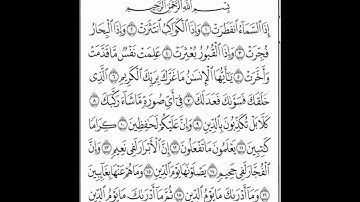 بِسْمِ ٱللَّهِ ٱلرَّحْمَٰنِ ٱلرَّحِيمِ
إِذَا ٱلسَّمَآءُ ٱنفَطَرَتْ ١ وَإِذَا ٱلْكَوَاكِبُ ٱنتَثَرَتْ ٢ وَإِذَا ٱلْبِحَارُ
فُجِّرَتْ ٣ وَإِذَا ٱلْقُبُورُ بُعْثِرَتْ ٤ عَلِمَتْ نَفْسٌ مَّا قَدَّمَتْ
وَأَخَّرَتْ ٥ يَٰٓأَيُّهَا ٱلْإِنسَٰنُ مَا غَرَّكَ بِرَبِّكَ ٱلْكَرِيمِ ٦ ٱلَّذِى
خَلَقَكَ فَسَوَّىٰكَ فَعَدَلَكَ ٧ فِىٓ أَىِّ صُورَةٍ مَّا شَآءَ رَكَّبَكَ ٨
كَلَّا بَلْ تُكَذِّبُونَ بِٱلدِّينِ ٩ وَإِنَّ عَلَيْكُمْ لَحَٰفِظِينَ ١٠ كِرَامًا
كَٰتِبِينَ ١١ يَعْلَمُونَ مَا تَفْعَلُونَ ١٢ إِنَّ ٱلْأَبْرَارَ لَفِى نَعِيمٍ ١٣ وَإِنَّ
ٱلْفُجَّارَ لَفِى جَحِيمٍ ١٤ يَصْلَوْنَهَا يَوْمَ ٱلدِّينِ ١٥ وَمَا هُمْ عَنْهَا بِغَآئِبِينَ
١٦ وَمَآ أَدْرَىٰكَ مَا يَوْمُ ٱلدِّينِ ١٧ ثُمَّ مَآ أَدْرَىٰكَ مَا يَوْمُ